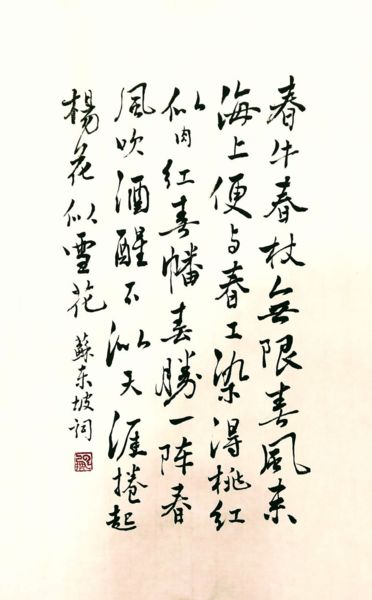 春牛春杖無限春風来
海上便与春工染得桃红
似肉红春幡春勝一阵春
風吹酒醒不似天涯捲起
楊花似雪花
蘇东坡词